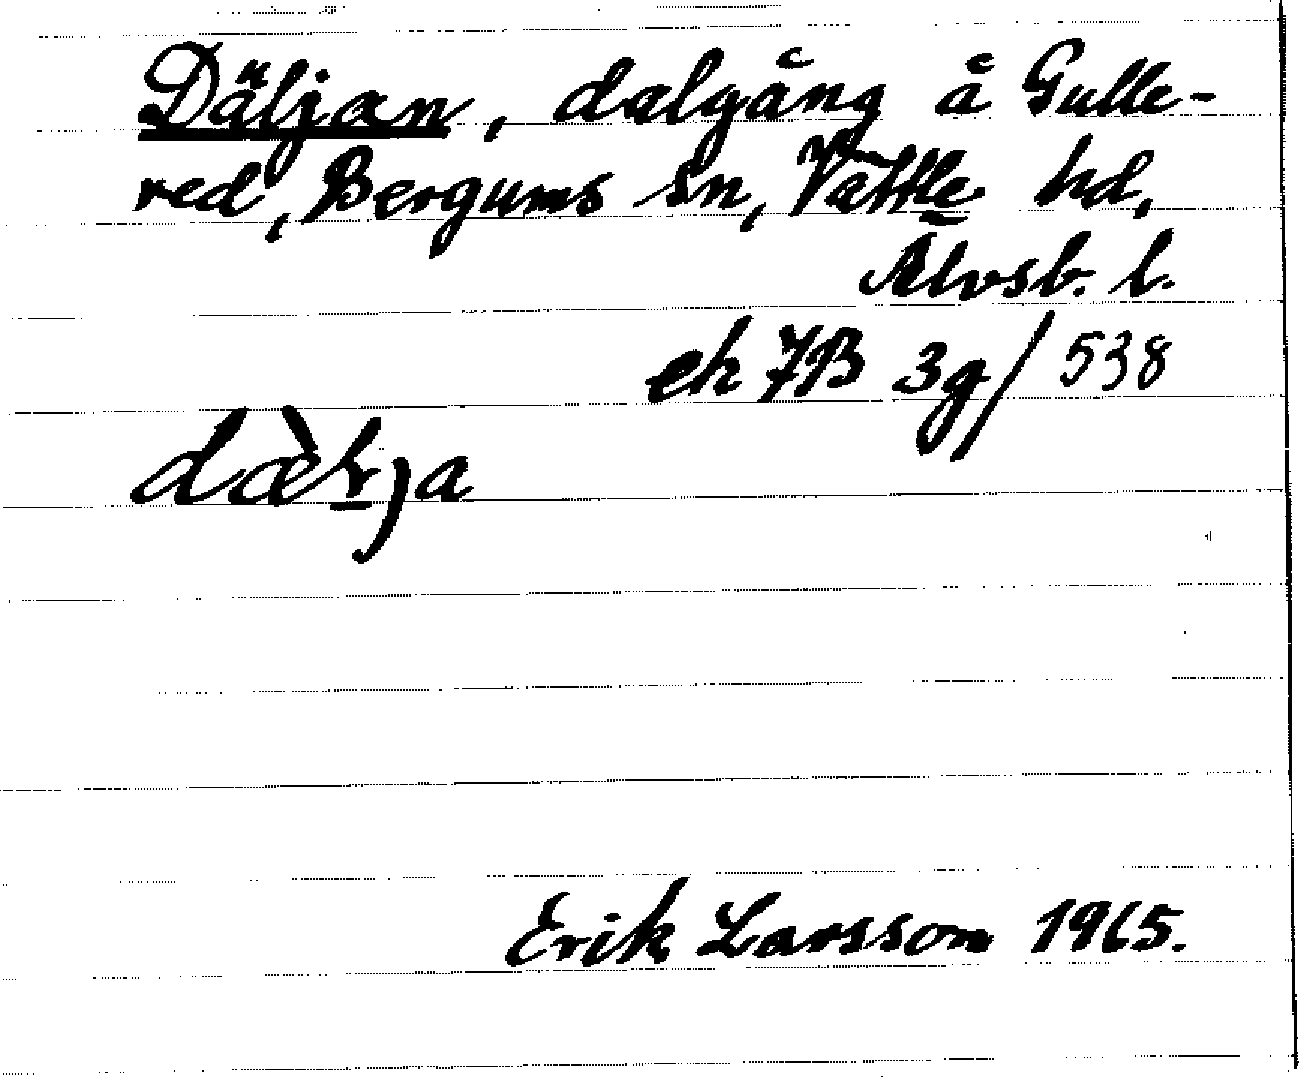 Däljan, dalgång å Gulle-
red, Bergums sn, Vättle hd,
Älvsb. l.
ek 7B 3g/538
Erik Larsson 1965.